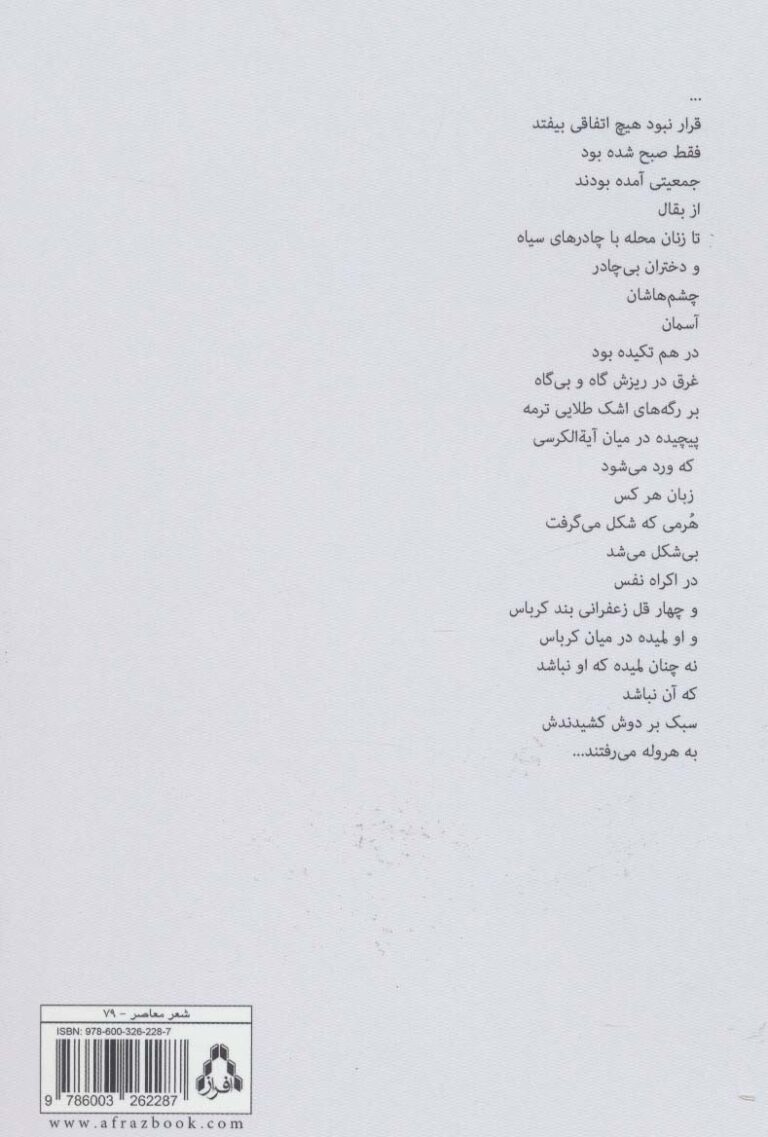 ...
قرار نبود هیچ اتفاقی بیفتد
فقط صبح شده بود
جمعیتی آمده بودند
از بقال
تا زنان محله با چادرهای سیاه
و دختران بی‌چادر
چشم‌هاشان
آسمان
در هم تکیده بود
غرق در ریزش گاه و بی‌گاه
بر رگه‌های اشک طلایی ترمه
پیچیده در میان آیةالکرسی
که ورد می‌شود
زبان هر کس
هُرمی که شکل می‌گرفت
بی‌شکل می‌شد
در اکراه نفس
و چهار قل زعفرانی بند کرباس
و او لمیده در میان کرباس
نه چنان لمیده که او نباشد
که آن نباشد
سبک بر دوش کشیدندش
به هروله می‌رفتند...
شعر معاصر - ۷۹
ISBN: 978-600-326-228-7
افراز
9 786003 262287
www.afrazbook.com